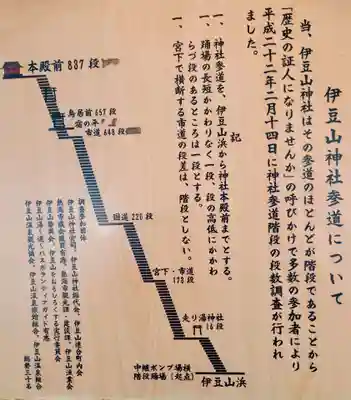 伊豆山神社参道について
当、伊豆山神社はその参道のほとんどが階段であることから
「歴史の証人になりませんか」の呼びかけで多数の参加者により
平成二十二年二月十四日に神社参道階段の段数調査が行われ
ました。
記
一、神社参道を、伊豆山浜から神社本殿前までとする。
一、踊場の長短かかわりなく一段、段の高低にかかわ
らづ段のあるところは一段とする。
一、宮下で横断する市道の段差は、階段としない。
本殿前 837 段
鳥居前 657 段
市道 648 段
国道 226 段
宮下・市道
198 段
走り湯神社
16 段
中継ポンプ場横
階段踊場 [起点]
伊豆山浜
調査参加団体
伊豆山神社宮司、伊豆山神社総代会、伊豆山連合町内会
熱海市議会議員有志、熱海市観光課・建設課、伊豆山漁業会
伊豆山勢賀会、伊豆山をおもしろくする実行委員会
伊豆山温泉観光協会、伊豆山温泉旅館組合、伊豆山温泉組合
総勢三十名